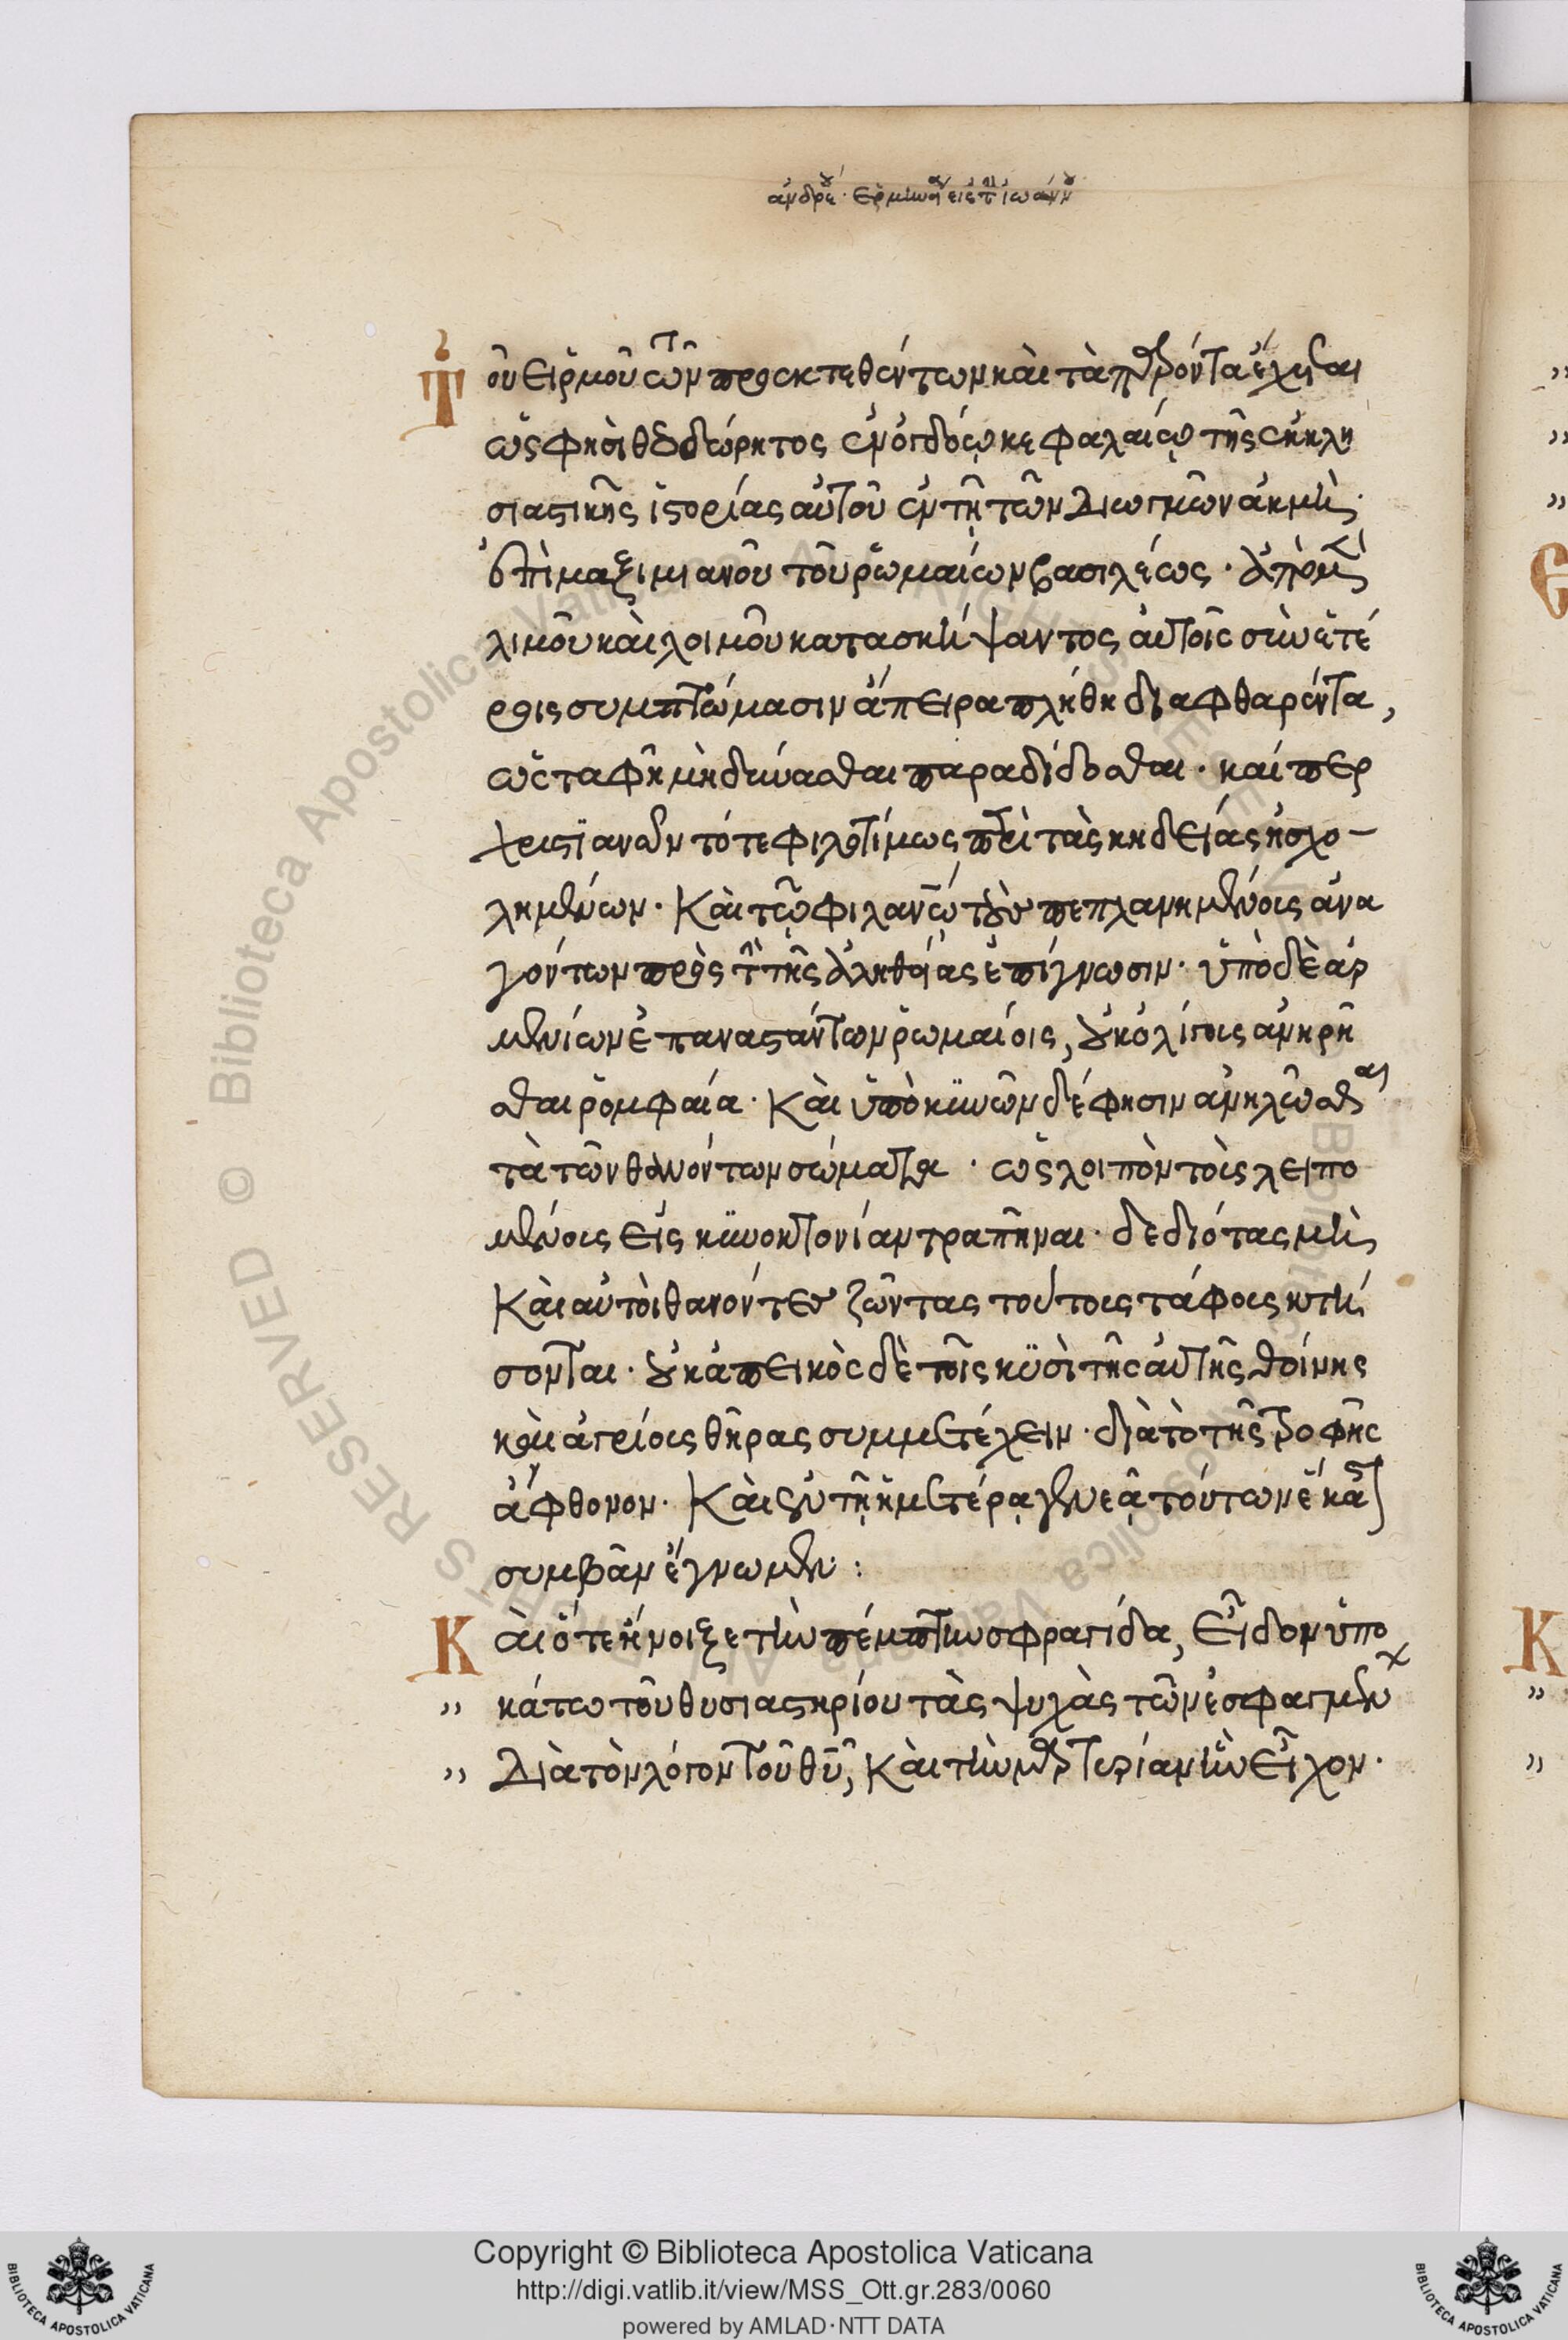 ἀνδρέου ἑρμηνεία εἰς τὴν ἰωάννου
Τοῦ εἱρμοῦ τῶν προεκτεθέντων καὶ τὰ παρόντα ἔχεται
ὥς φησι θεοδώρητος ἐν ὀγδόῳ κεφαλαίῳ τῆς ἐκκλη
σιαστικῆς ἱστορίας αὐτοῦ ἐν τῇ τῶν διωγμῶν ἀκμῇ.
ἐπὶ μαξιμιανοῦ τοῦ ῥωμαίων βασιλέως.
λιμοῦ καὶ λοιμοῦ κατασκήψαντος αὐτοῖς σὺν ἑτέ
ροις συμπτώμασιν ἄπειρα πλήθη διαφθαρέντα,
ὡς ταφῇ μὴ δύνασθαι παραδίδοσθαι. καίπερ
χριστιανῶν τότε φιλοτίμως περὶ τὰς κηδείας ἠσχο-
λημένων. Καὶ τῷ φιλανῳ τοὺς πεπλανημένοις ἀνα
γόντων πρὸς τὴν τῆς ἀληθείας ἐπίγνωσιν. ὑπὸ δὲ ἀρ
μενίων ἐπαναστάντων ῥωμαίοις, οὐκ ὀλίγοις ἀνῃρῆ
σθαι ῥομφαία. Καὶ ὑπὸ κυνῶν δέ φησιν ἀνηλῶσθαι
τὰ τῶν θανόντων σώματα. ὡς λοιπὸν τοῖς λειπο
μένοις εἰς κυνοκτονίαν τραπῆναι. δεδιότας μὴ
Καὶ αὐτοὶ θανόντες ζῶντας τούτοις τάφοις κτή
σονται. οὐκ ἀπεικὸς δὲ τοῖς κυσὶ τῆς αὐτῆς θοίνης
καὶ ἀγρίοις θῆρας συμμετέχειν. διὰ τὸ τῆς τροφῆς
ἄφθονον. Καὶ ἐν τῇ ἡμετέρᾳ γενεᾷ τούτων ἕκαστον
συμβὰν ἔγνωμεν:
Καὶ ὅτε ἤνοιξε τὴν πέμπτην σφραγίδα, εἶδον ὑπο
" κάτω τοῦ θυσιαστηρίου τὰς ψυχὰς τῶν ἐσφαγμένων
" Διὰ τὸν λόγον τοῦ θῦ, Καὶ τὴν μαρτυρίαν ἣν εἶχον.
Copyright © Biblioteca Apostolica Vaticana
http://digi.vatlib.it/view/MSS_Ott.gr.283/0060
powered by AMLAD·NTT DATA